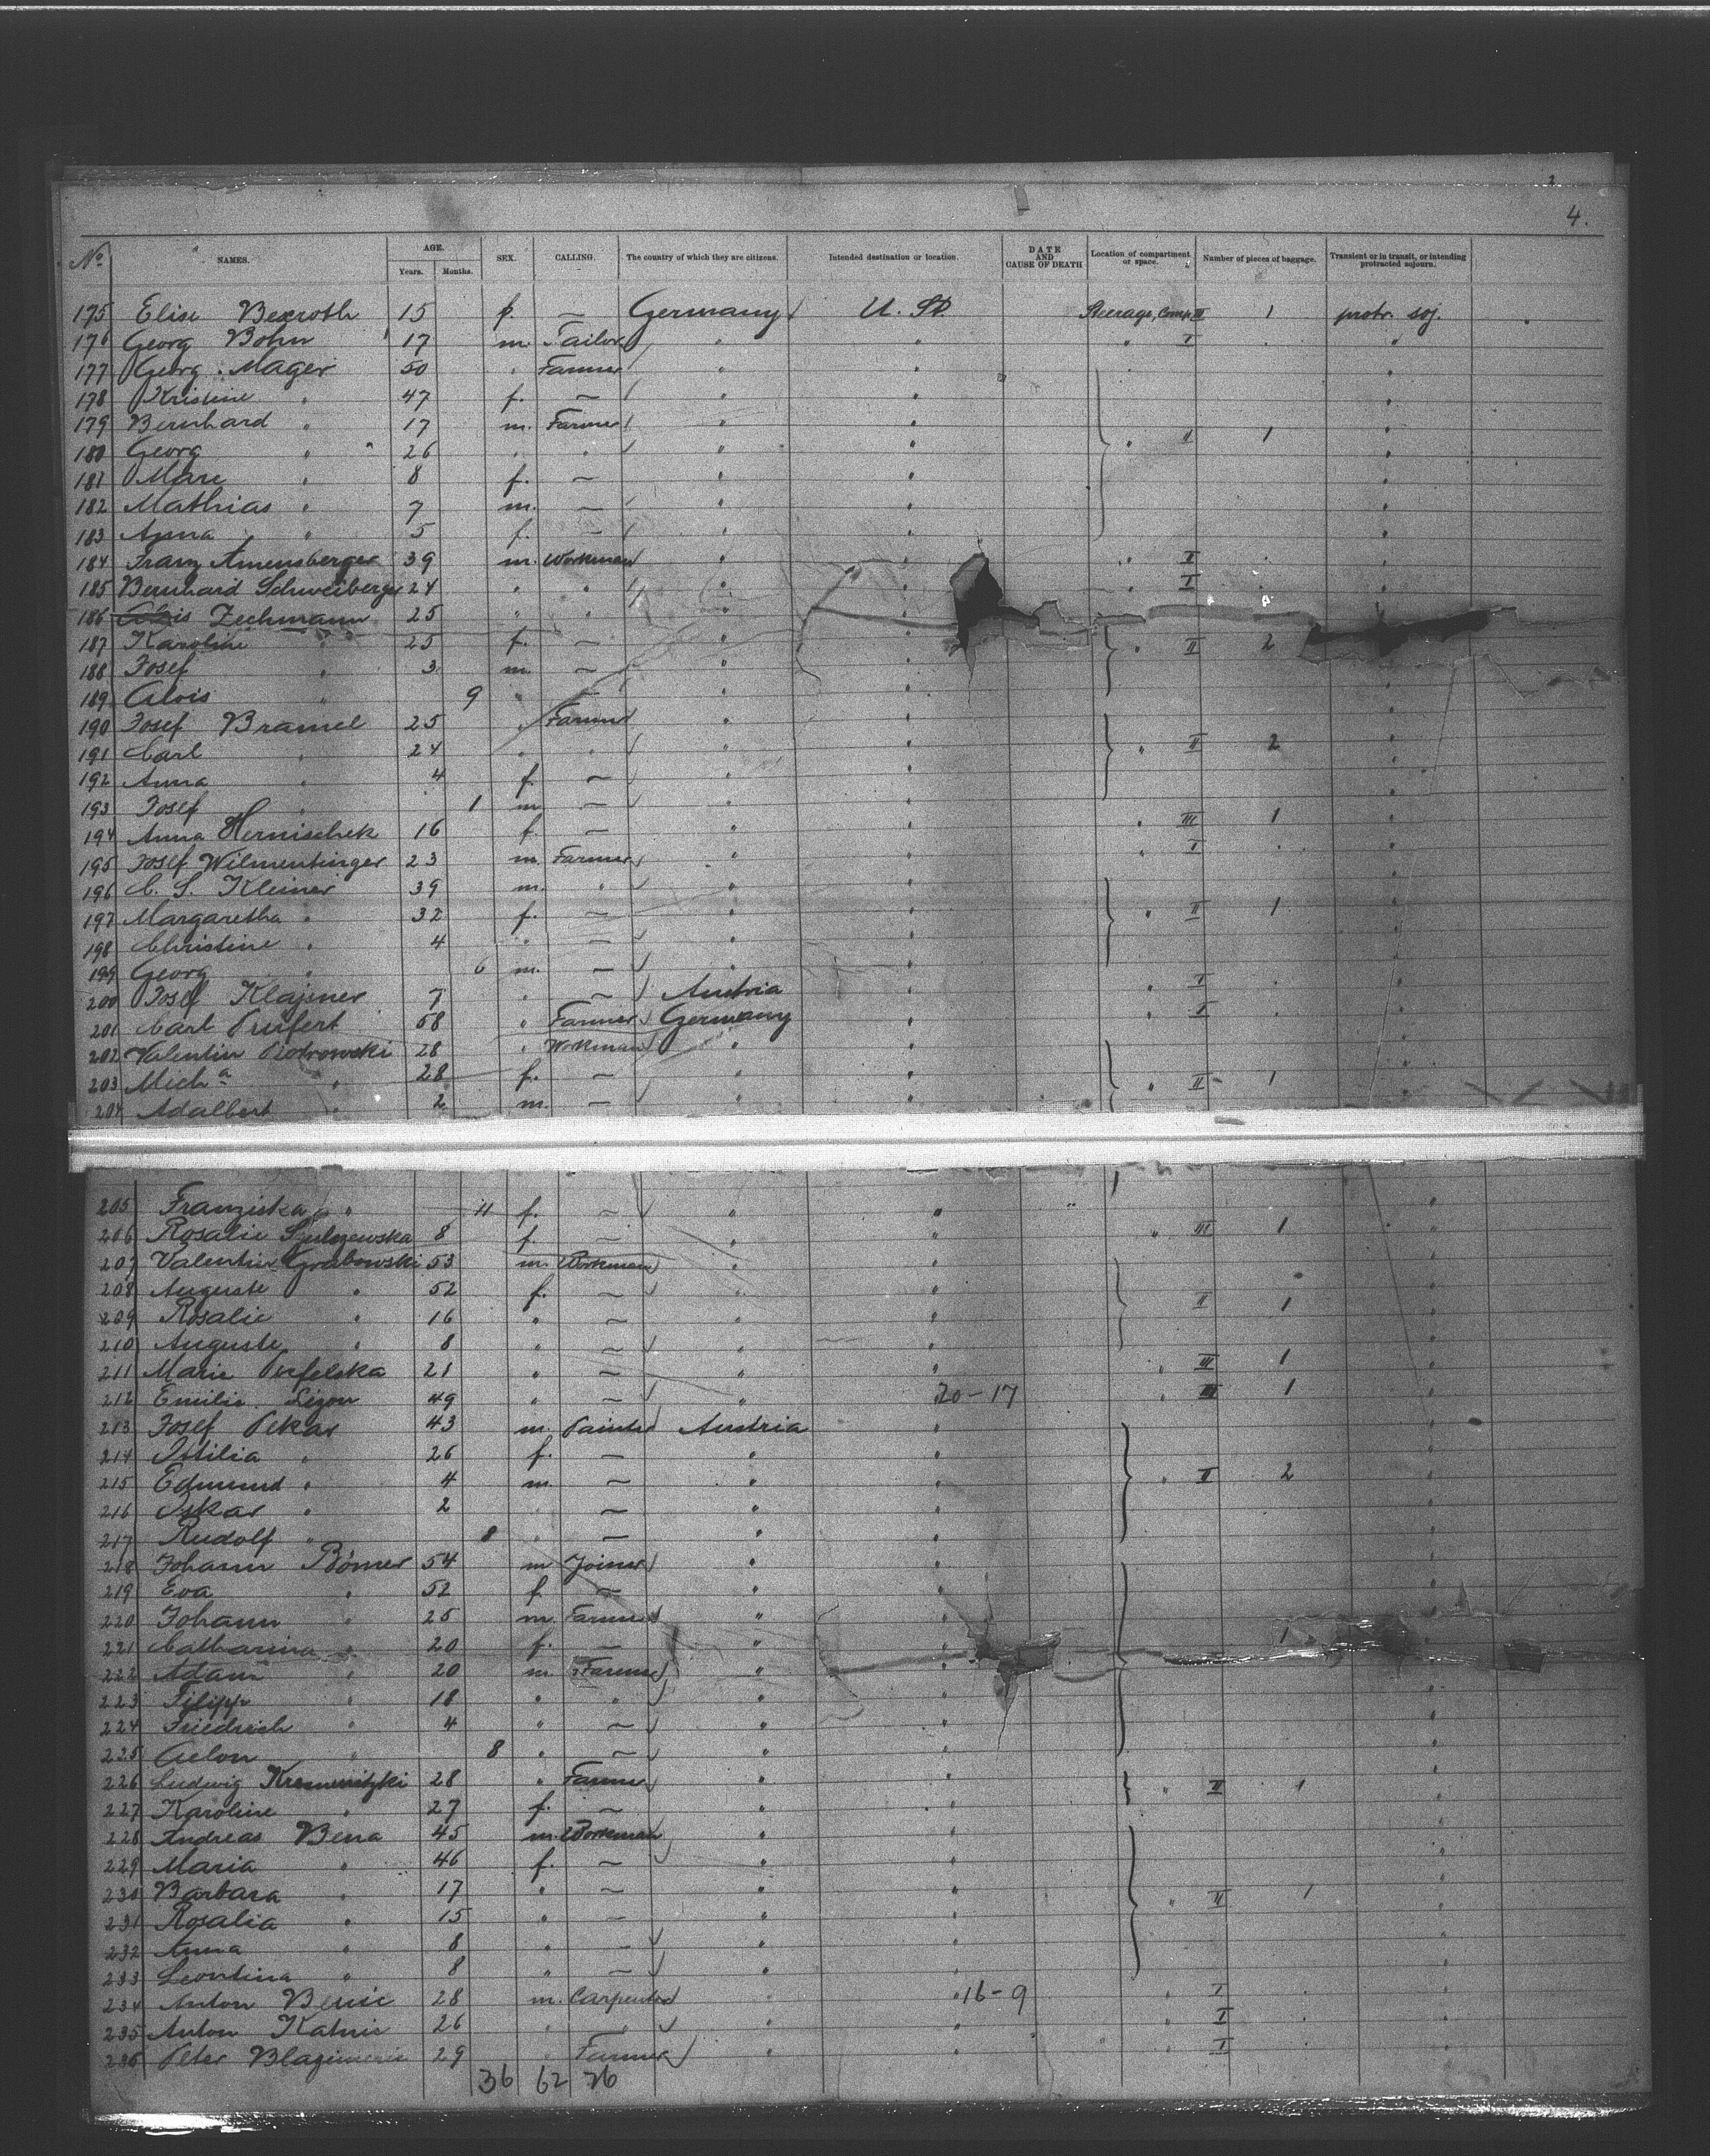 4.
No. NAMES. AGE. Years. Months. SEX. CALLING. The country of which they are citizens. Intended destination or location. DATE AND CAUSE OF DEATH Location of compartment or space. Number of pieces of baggage. Transient or in transit, or intending protracted sojourn.
175 Elise Bexroth 15 f. — Germany U. St. Steerage, Comp. III 1 protr. soj.
176 Georg Bohn 17 m. Tailor " " " I " "
177 Georg Mager 50 " Farmer " " "
178 Kristine " 47 f. — " " "
179 Bernhard " 17 m. Farmer " " "
180 Georg " 26 " " " " " II 1 "
181 Marie " 8 f. — " " "
182 Mathias " 7 m. — " " "
183 Anna " 5 f. — " " "
184 Franz Amensberger 39 m. Workman " " " I " "
185 Bernhard Schweiberger 24 " " " " " I "
186 Alois Zechmann 25 " " " "
187 Karoline " 25 f. — " " " II 2
188 Josef " 3 m. — " " "
189 Alois " 9 " — " " "
190 Josef Bramel 25 " Farmer " " "
191 Carl " 24 " " " " " II 2 "
192 Anna " 4 f. — " " "
193 Josef " 1 m — " " "
194 Anna Hernischek 16 f. — " " " III 1 "
195 Josef Wilmentinger 23 m. Farmer " " " I " "
196 C. S. Kleiner 39 m. " " " "
197 Margaretha " 32 f. — " " " II 1 "
198 Christine " 4 " — " " "
199 Georg " 6 m. — " " "
200 Josef Klajsner 7 " — Austria " " I " "
201 Carl Purfert 58 " Farmer Germany " " I " "
202 Valentin Piotrowski 28 " Workman " " "
203 Mich a " 28 f. — " " " II 1 "
204 Adalbert " 2 m. — " " "
205 Franziska " 11 f. — " " "
206 Rosalie 8 f. — " " " III 1 "
207 Valentin Grabowski 53 m. Workman " " "
208 Auguste " 52 f. — " " "
209 Rosalie " 16 " — " " II 1 "
210 Auguste " 8 " — " " "
211 Marie 21 " — " " " III 1 "
212 Emilie Lizon 49 " — " 20-17 " III 1 "
213 Josef Pekar 43 m. Painter Austria " "
214 Ottilia " 26 f. — " " "
215 Edmund " 4 m. — " " " II 2 "
216 Oskar " 2 " — " " "
217 Rudolf " 8 " — " " "
218 Johann Bömer 54 m Joiner " " "
219 Eva " 52 f — " " "
220 Johann " 25 m. Farmer " " "
221 Catharina " 20 f. — " " 1 "
222 Adam " 20 m Farmer " "
223 Filipp " 18 " " " " "
224 Friedrich " 4 " — " " "
225 " 8 " — " " "
226 Ludwig Kremenitzki 28 " Farmer " " " II 1 "
227 Karoline " 27 f. — " " "
228 Andreas Bena 45 m. Workman " " "
229 Maria " 46 f. — " " "
230 Barbara " 17 " — " " " II 1 "
231 Rosalia " 15 " — " " "
232 Anna " 8 " — " " "
233 Leontina " 8 " — " " "
234 Anton 28 m. Carpenter " 16-9 " I " "
235 Anton 26 " " " " " I "
236 Peter 29 " Farmer " " " I " "
36 62 26